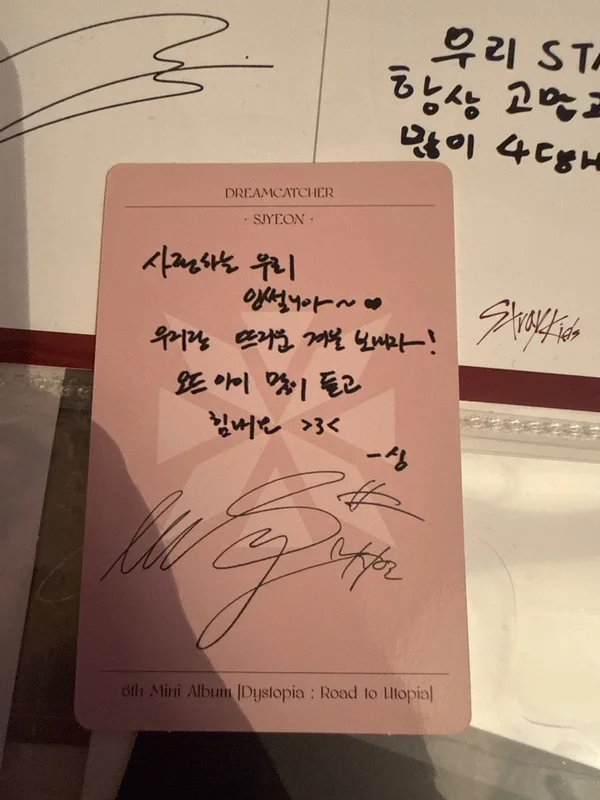 우리 STA
항상 고맙고
많이 4당해
DREAMCATCHER
· SIYEON ·
사랑하는 우리
잉썸니아~ ♥
우리랑 뜨거운 겨울 보내자~!
오드 아이 많이 듣고
힘내요 >3<
-싱
Stray Kids
6th Mini Album [Dystopia : Road to Utopia]